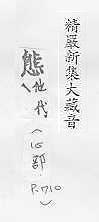 精嚴新集大藏音
態他代〈心部.P.1710〉